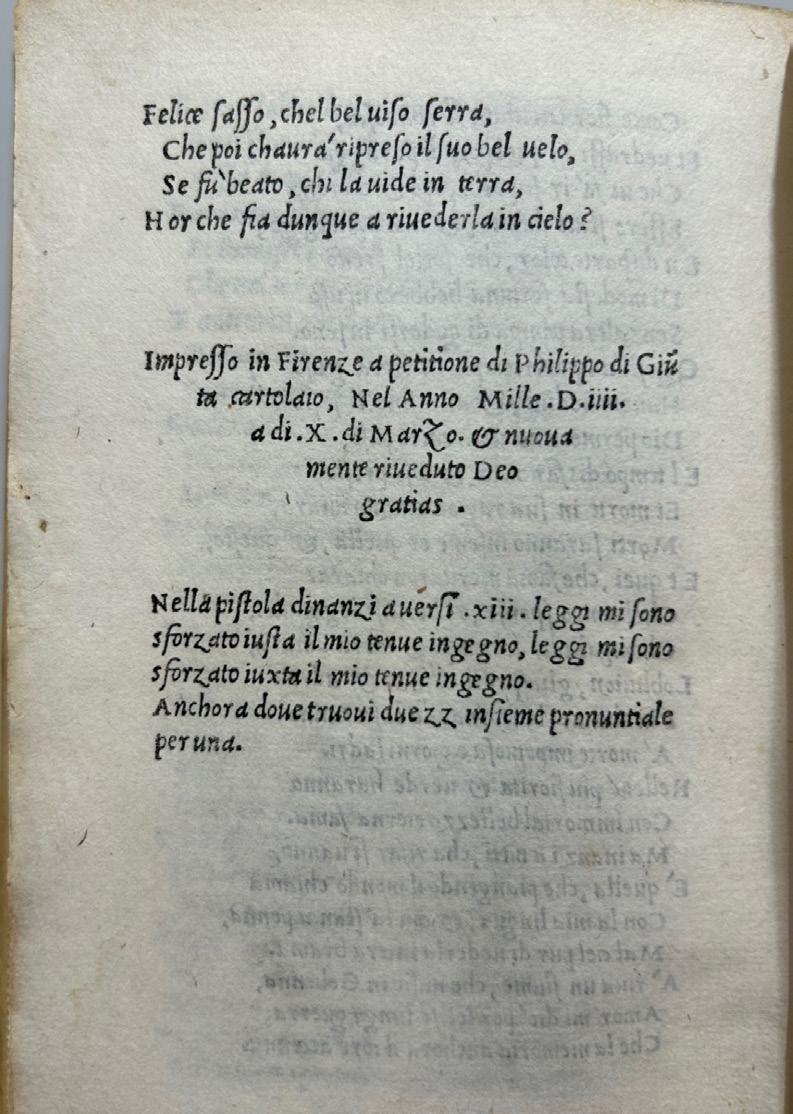 Felice sasso, chel bel uiso serra,
Che poi chaura' ripreso il suo bel uelo,
Se fu` beato, chi la uide in terra,
Hor che fia dunque a riuederla in cielo?
Impresso in Firenze a petitione di Philippo di Giū
ta cartolaio, Nel Anno Mille .D.iiii.
a di .X. di Marzo. & nuoua
mente riueduto Deo
gratias .
Nella pistola dinanzi a uersi .xiii. leggi mi sono
sforzato iusta il mio tenue ingegno, leggi mi sono
sforzato iuxta il mio tenue ingegno.
Anchora doue truoui due zz insieme pronuntiale
per una.